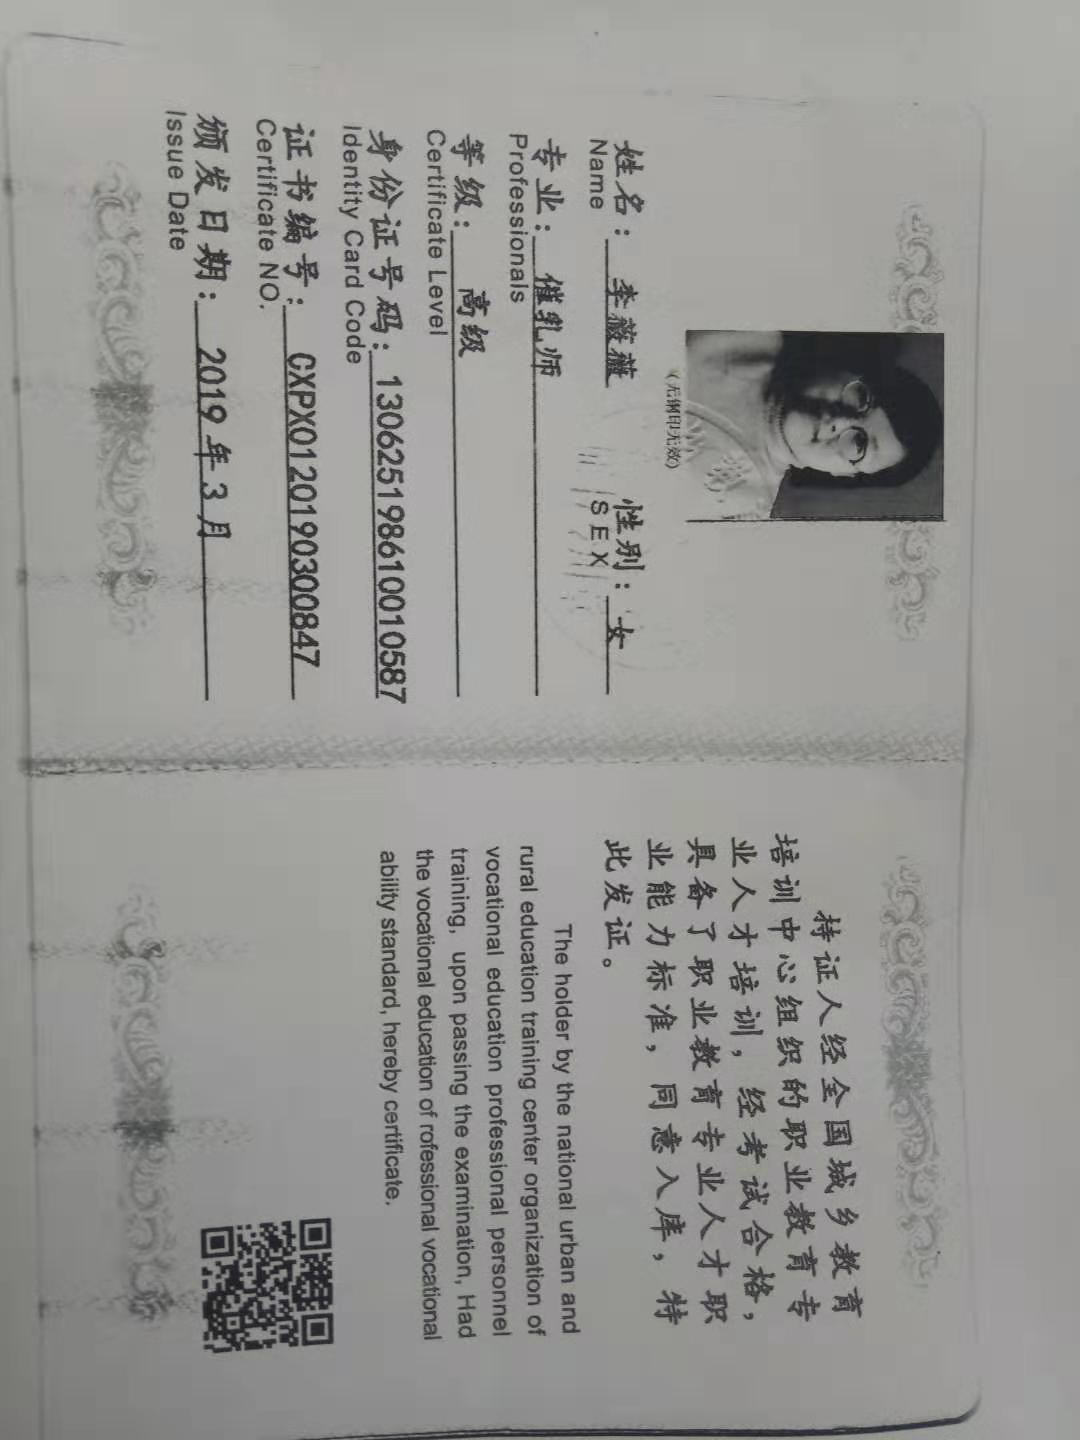 (无钢印无效)
姓名：李薇薇 性别：女
Name SEX
专业：催乳师
Professionals
等级：高级
Certificate Level
身份证号码：130625198610010587
Identity Card Code
证书编号：CXPX0120190300847
Certificate NO.
颁发日期：2019年3月
Issue Date
持证人经全国城乡教育
培训中心组织的职业教育专
业人才培训，经考试合格，
具备了职业教育专业人才职
业能力标准，同意入库，特
此发证。
The holder by the national urban and
rural education training center organization of
vocational education professional personnel
training, upon passing the examination, Had
the vocational education of rofessional vocational
ability standard, hereby certificate.